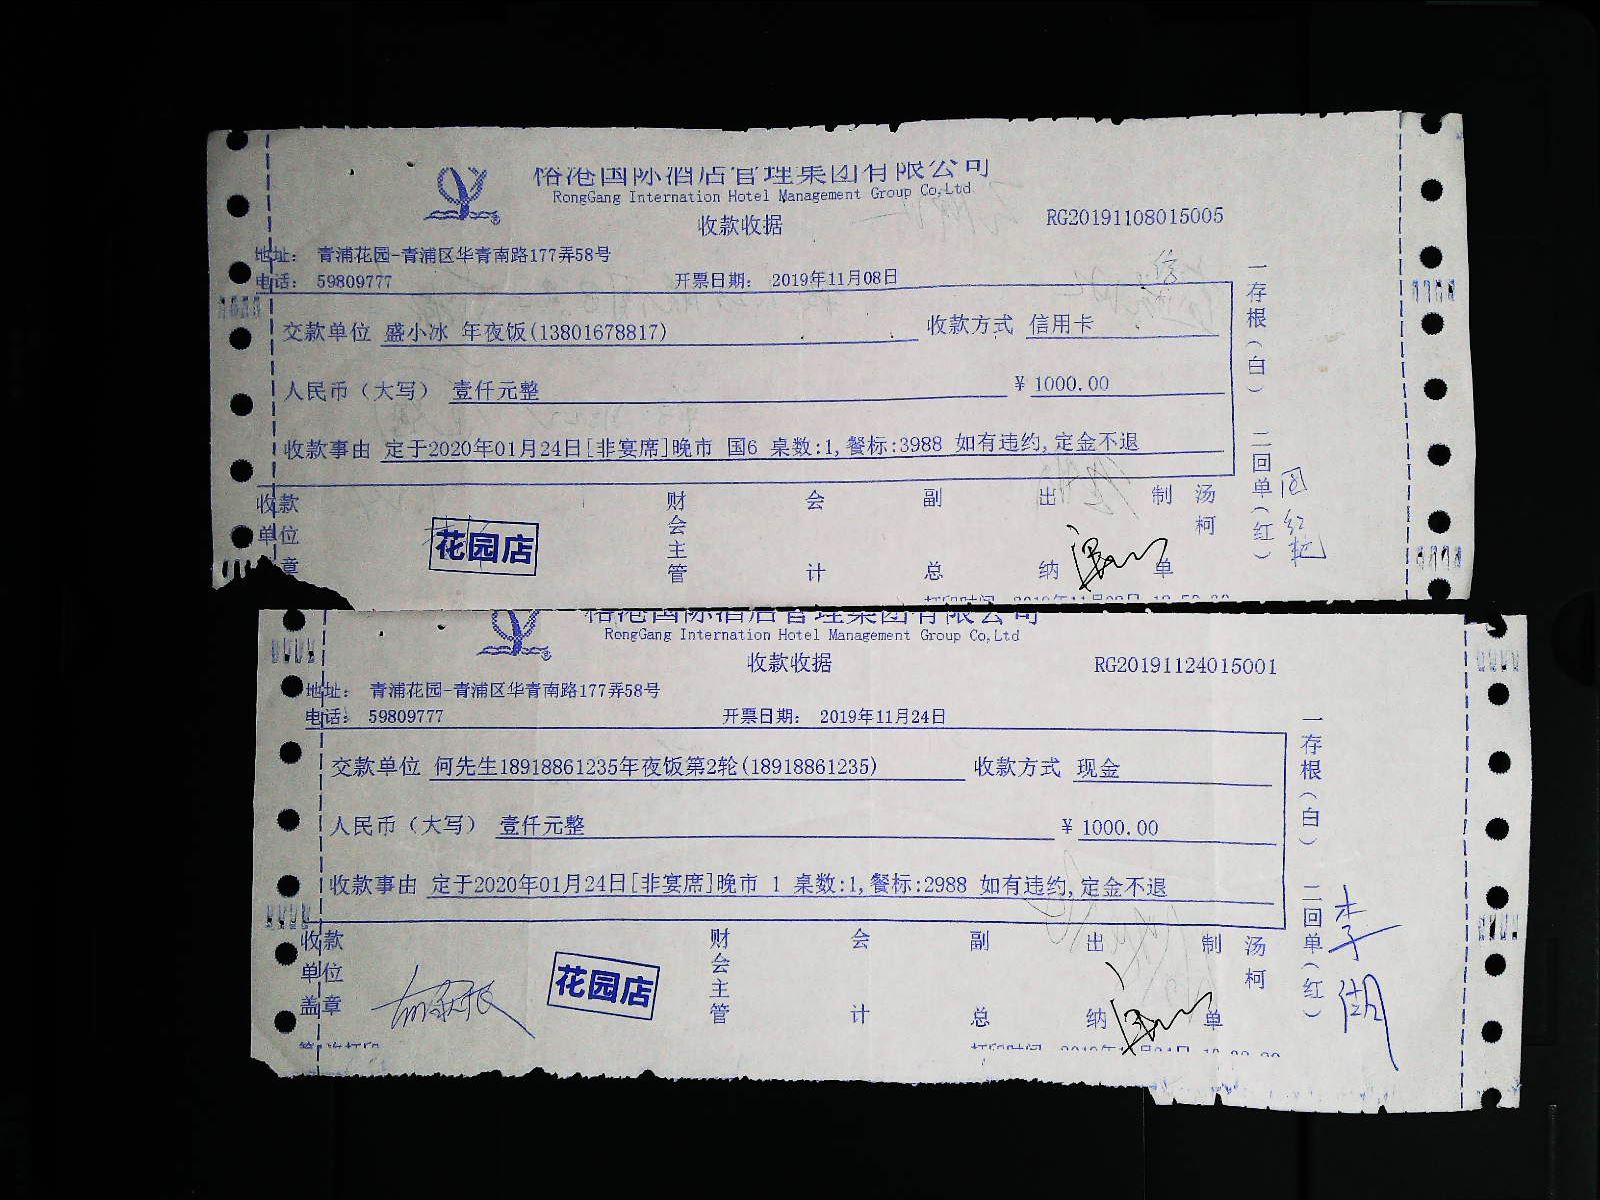 裕港国际酒店管理集团有限公司
RongGang Internation Hotel Management Group Co,Ltd
收款收据
RG20191108015005
地址： 青浦花园-青浦区华青南路177弄58号
电话： 59809777
开票日期： 2019年11月08日
交款单位 盛小冰 年夜饭(13801678817)
收款方式 信用卡
人民币（大写） 壹仟元整
¥ 1000.00
收款事由 定于2020年01月24日[非宴席]晚市 国6 桌数:1,餐标:3988 如有违约,定金不退
一存根（白） 二回单（红）
收款单位 章
花园店
财会主管
会计
副总
出纳
制单
汤柯
裕港国际酒店管理集团有限公司
RongGang Internation Hotel Management Group Co,Ltd
收款收据
RG20191124015001
地址： 青浦花园-青浦区华青南路177弄58号
电话： 59809777
开票日期： 2019年11月24日
交款单位 何先生18918861235年夜饭第2轮(18918861235)
收款方式 现金
人民币（大写） 壹仟元整
¥ 1000.00
收款事由 定于2020年01月24日[非宴席]晚市 1 桌数:1,餐标:2988 如有违约,定金不退
一存根（白） 二回单（红）
收款单位盖章
花园店
财会主管
会计
副总
出纳
制单
汤柯